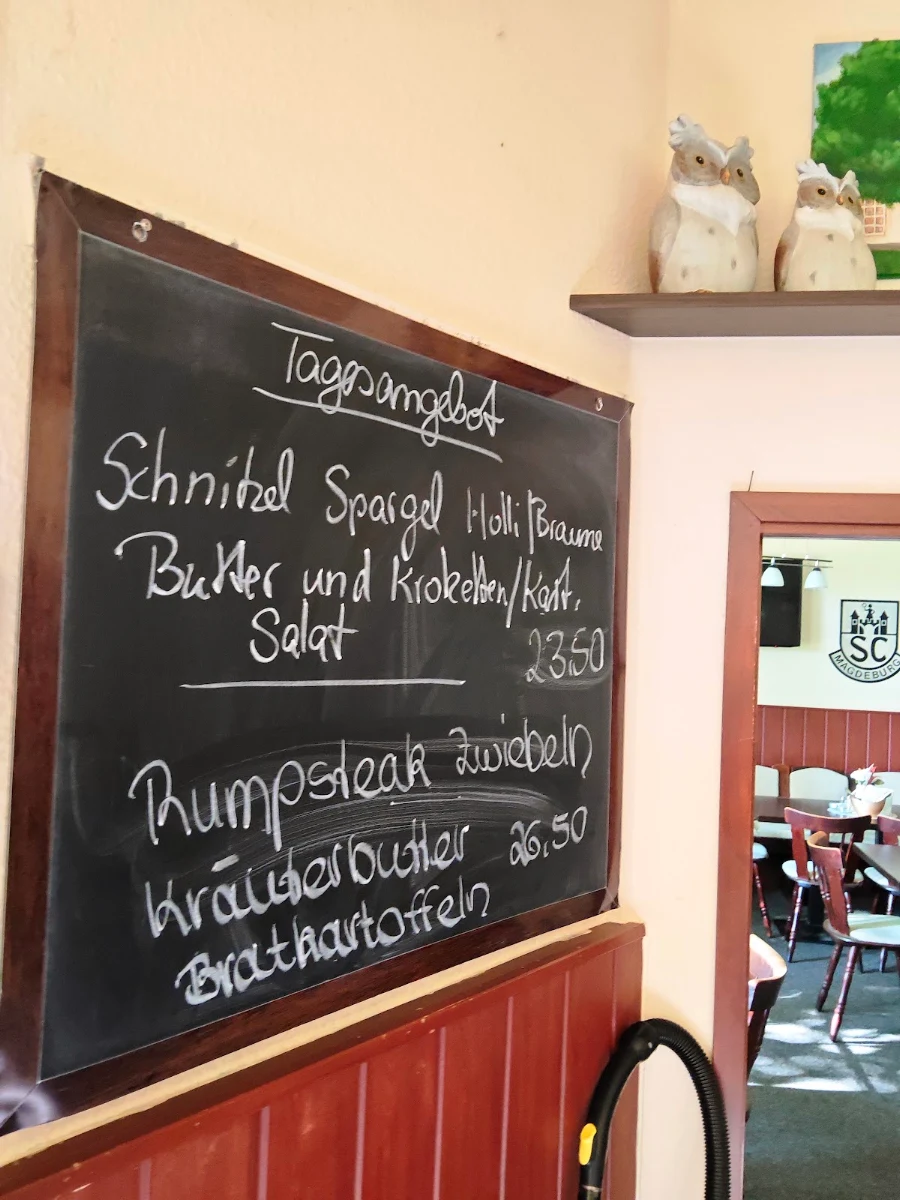 Tagesangebot
Schnitzel Spargel Holli/Braune
Butter und Kroketten/Kart.
Salat 23.50
Rumpsteak Zwiebeln
Kräuterbutter 26,50
Bratkartoffeln
SC
MAGDEBURG